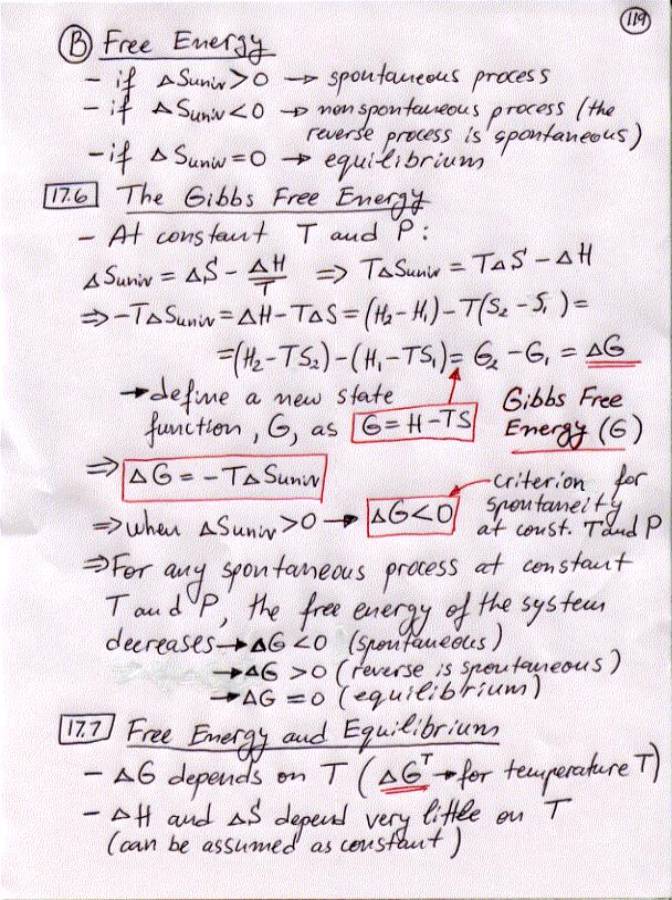 119
B Free Energy
- if ΔSuniv>0 → spontaneous process
- if ΔSuniv<0 → nonspontaneous process (the
reverse process is spontaneous)
- if ΔSuniv=0 → equilibrium
17.6 The Gibbs Free Energy
- At constant T and P:
ΔSuniv = ΔS - ΔH/T ⇒ TΔSuniv = TΔS - ΔH
⇒ -TΔSuniv = ΔH-TΔS = (H₂-H₁)-T(S₂-S₁) =
=(H₂-TS₂)-(H₁-TS₁)= G₂-G₁ = ΔG
→ define a new state
function, G, as G=H-TS
Gibbs Free
Energy (G)
⇒ ΔG = -TΔSuniv
⇒ when ΔSuniv>0 → ΔG<0
criterion for
spontaneity
at const. T and P
⇒ For any spontaneous process at constant
T and P, the free energy of the system
decreases → ΔG <0 (spontaneous)
→ ΔG >0 (reverse is spontaneous)
→ ΔG =0 (equilibrium)
17.7 Free Energy and Equilibrium
- ΔG depends on T (ΔGᵀ → for temperature T)
- ΔH and ΔS depend very little on T
(can be assumed as constant)